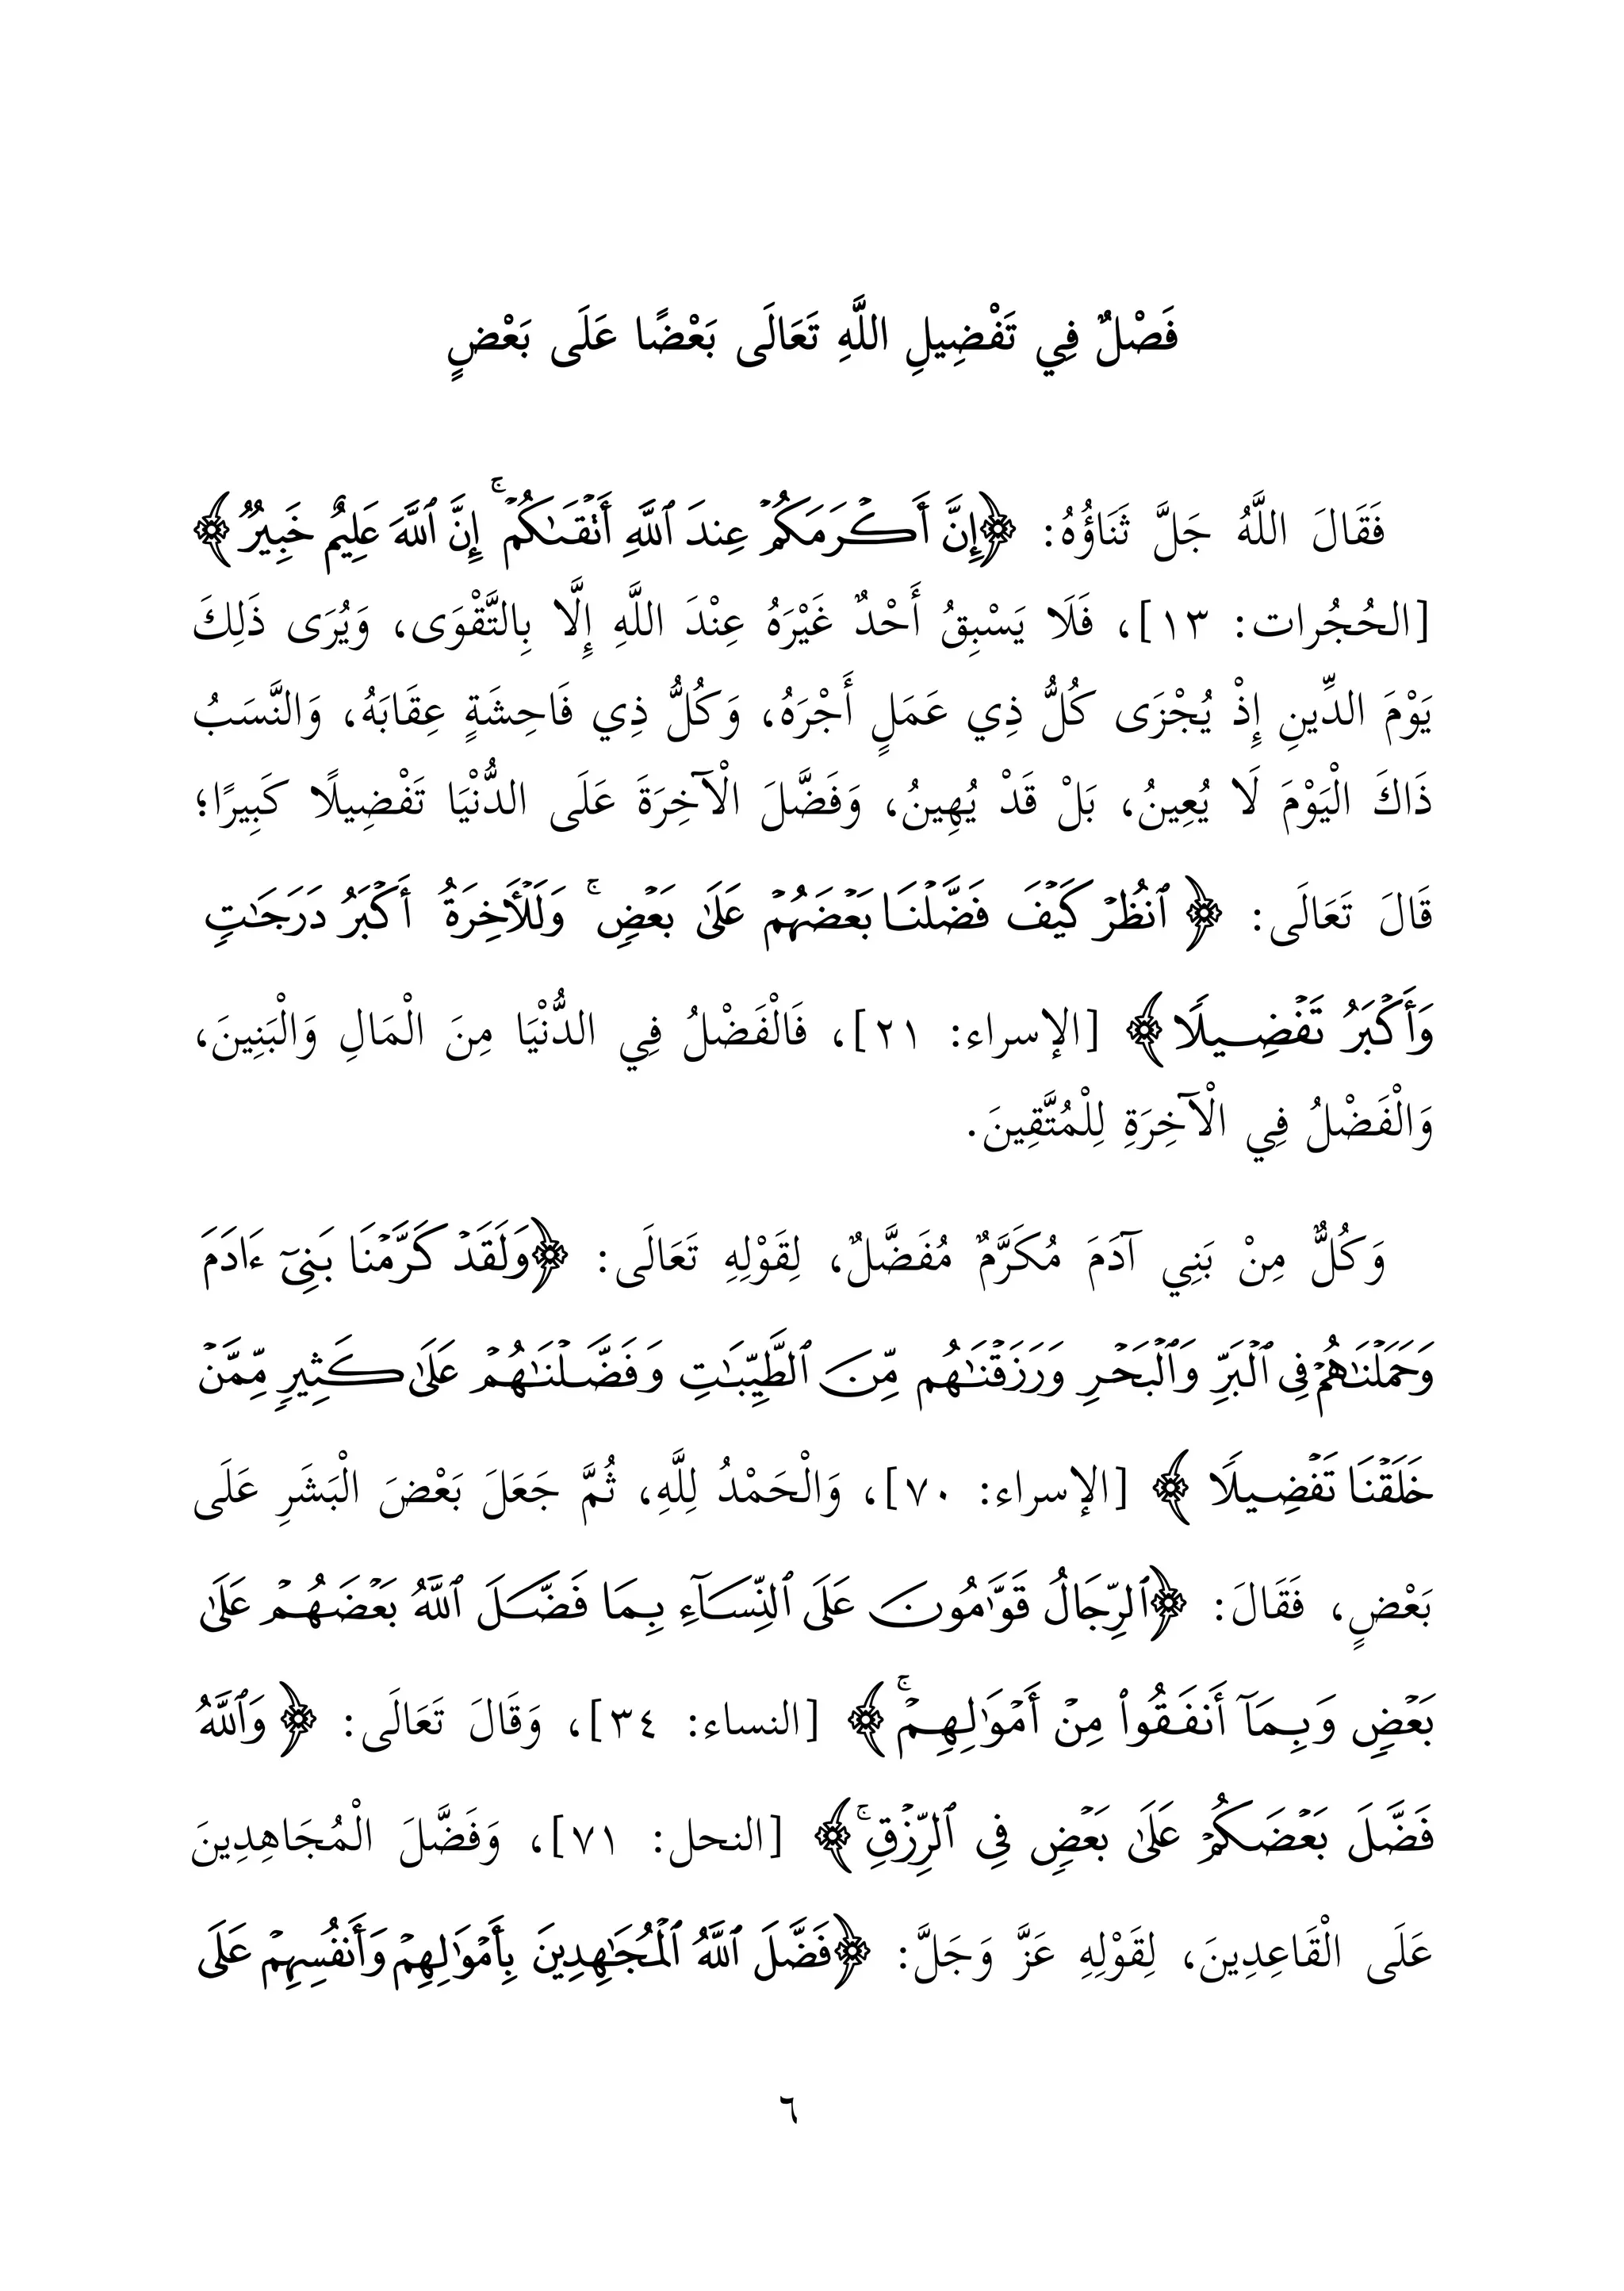 فَصْلٌ فِي تَفْضِيلِ اللَّهِ تَعَالَى بَعْضًا عَلَى بَعْضٍ
فَقَالَ اللَّهُ جَلَّ ثَنَاؤُهُ: ﴿إِنَّ أَكۡرَمَكُمۡ عِندَ ٱللَّهِ أَتۡقَىٰكُمۡۚ إِنَّ ٱللَّهَ عَلِيمٌ خَبِيرٌ﴾
[الحُجُرات: ١٣]، فَلَا يَسْبِقُ أَحْدٌ غَيْرَهُ عِنْدَ اللَّهِ إِلَّا بِالتَّقْوَى، وَيُرَى ذَلِكَ
يَوْمَ الدِّينِ إِذْ يُجْزَى كُلُّ ذِي عَمَلٍ أَجْرَهُ، وَكُلُّ ذِي فَاحِشَةٍ عِقَابَهُ، وَالنَّسَبُ
ذَاكَ الْيَوْمَ لَا يُعِينُ، بَلْ قَدْ يُهِينُ، وَفَضَّلَ الْآخِرَةَ عَلَى الدُّنْيَا تَفْضِيلًا كَبِيرًا؛
قَالَ تَعَالَى: ﴿ ٱنظُرۡ كَيۡفَ فَضَّلۡنَا بَعۡضَهُمۡ عَلَىٰ بَعۡضٖۚ وَلَلۡأٓخِرَةُ أَكۡبَرُ دَرَجَٰتٖ
وَأَكۡبَرُ تَفۡضِيلٗا ﴾ [الإسراء: ٢١]، فَالْفَضْلُ فِي الدُّنْيَا مِنَ الْمَالِ وَالْبَنِينَ،
وَالْفَضْلُ فِي الْآخِرَةِ لِلْمُتَّقِينَ.
وَكُلٌّ مِنْ بَنِي آدَمَ مُكَرَّمٌ مُفَضَّلٌ، لِقَوْلِهِ تَعَالَى: ﴿وَلَقَدۡ كَرَّمۡنَا بَنِيٓ ءَادَمَ
وَحَمَلۡنَٰهُمۡ فِي ٱلۡبَرِّ وَٱلۡبَحۡرِ وَرَزَقۡنَٰهُم مِّنَ ٱلطَّيِّبَٰتِ وَفَضَّلۡنَٰهُمۡ عَلَىٰ كَثِيرٖ مِّمَّنۡ
خَلَقۡنَا تَفۡضِيلٗا ﴾ [الإسراء: ٧٠]، وَالْحَمْدُ لِلَّهِ، ثُمَّ جَعَلَ بَعْضَ الْبَشَرِ عَلَى
بَعْضٍ، فَقَالَ: ﴿ٱلرِّجَالُ قَوَّٰمُونَ عَلَى ٱلنِّسَآءِ بِمَا فَضَّلَ ٱللَّهُ بَعۡضَهُمۡ عَلَىٰ
بَعۡضٖ وَبِمَآ أَنفَقُواْ مِنۡ أَمۡوَٰلِهِمۡۚ ﴾ [النساء: ٣٤]، وَقَالَ تَعَالَى: ﴿ وَٱللَّهُ
فَضَّلَ بَعۡضَكُمۡ عَلَىٰ بَعۡضٖ فِي ٱلرِّزۡقِۚ ﴾ [النحل: ٧١]، وَفَضَّلَ الْمُجَاهِدِينَ
عَلَى الْقَاعِدِينَ، لِقَوْلِهِ عَزَّ وَجَلَّ: ﴿فَضَّلَ ٱللَّهُ ٱلۡمُجَٰهِدِينَ بِأَمۡوَٰلِهِمۡ وَأَنفُسِهِمۡ عَلَى
٦